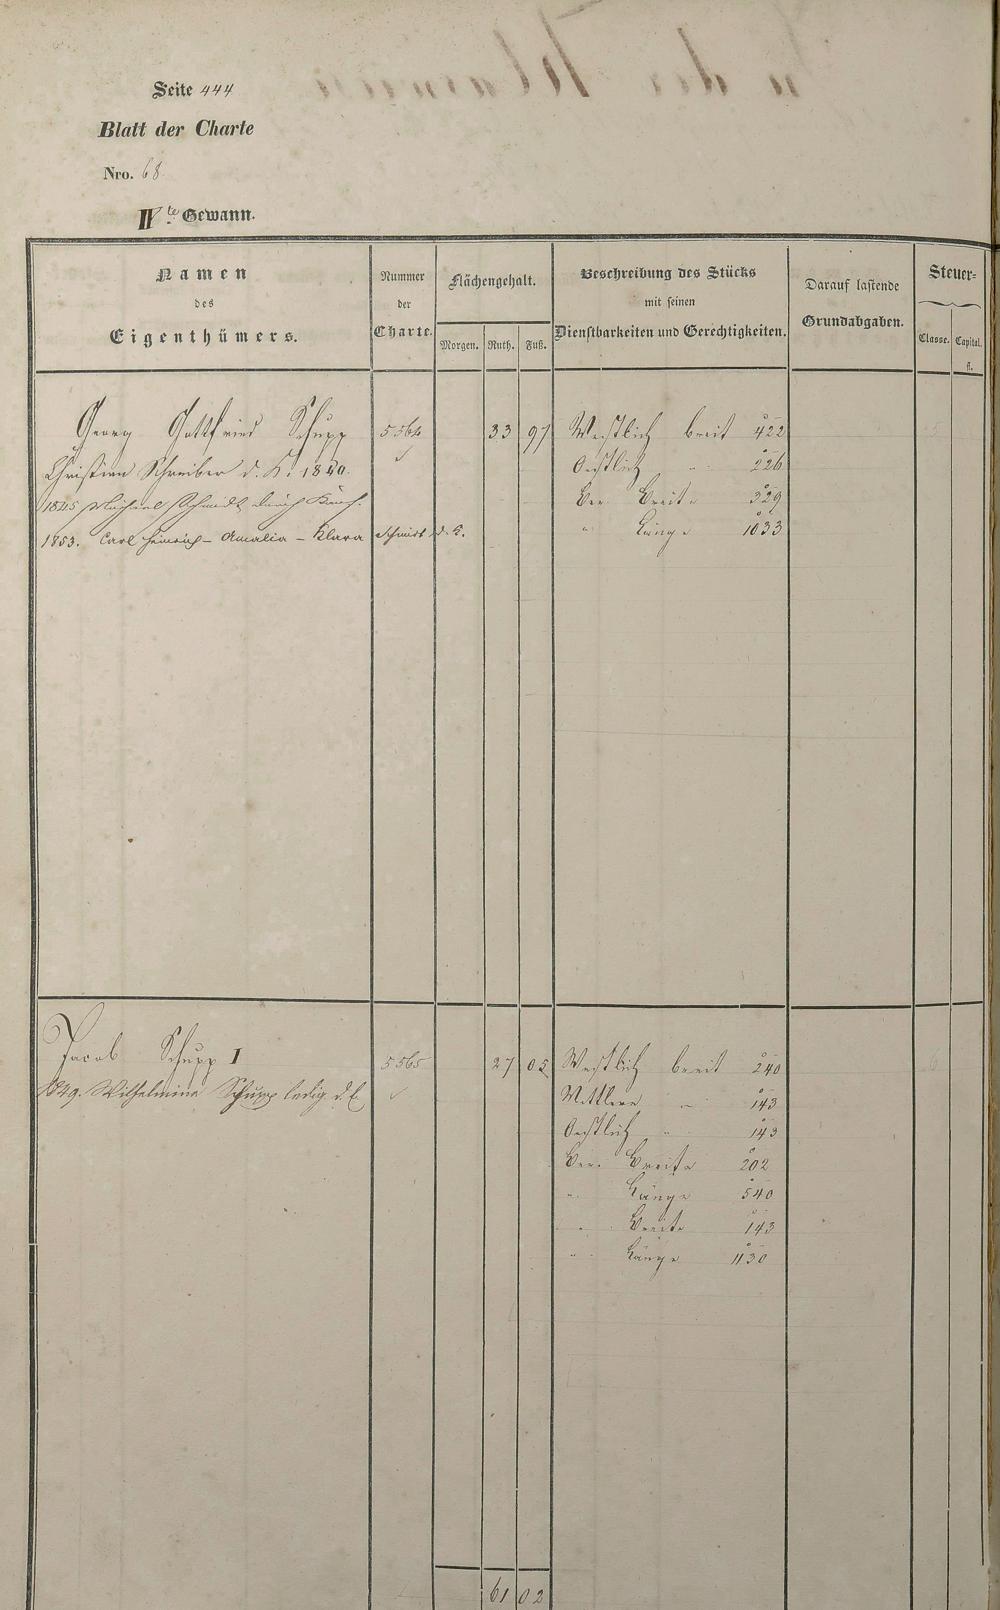 Seite 444
Blatt der Charte
Nro. 68
IVte Gewann.
Namen
des
Eigenthümers.
Nummer
der
Charte.
Flächengehalt.
Morgen. Ruth. Fuß.
Beschreibung des Stücks
mit seinen
Dienstbarkeiten und Gerechtigkeiten.
Darauf lastende
Grundabgaben.
Steuer-
Classe. Capital.
fl.
Georg Gottfried Schupp 5564 33 97 Westlich breit 422
Christian Schreiber d. K. 1840. Oestlich " 226
1845 Michael Schmidt durch Kauf. Der Breite 329
1853. Carl Heinrich - Amalia - Klara Schmidt d. K. " Länge 1033
Jacob Schupp I 5565 27 05 Westlich breit 240
1849. Wilhelmine Schupp ledig d. E. Mittlere " 143
Oestlich " 143
Der Breite 202
" Länge 540
" Breite 143
" Länge 1130
61 02